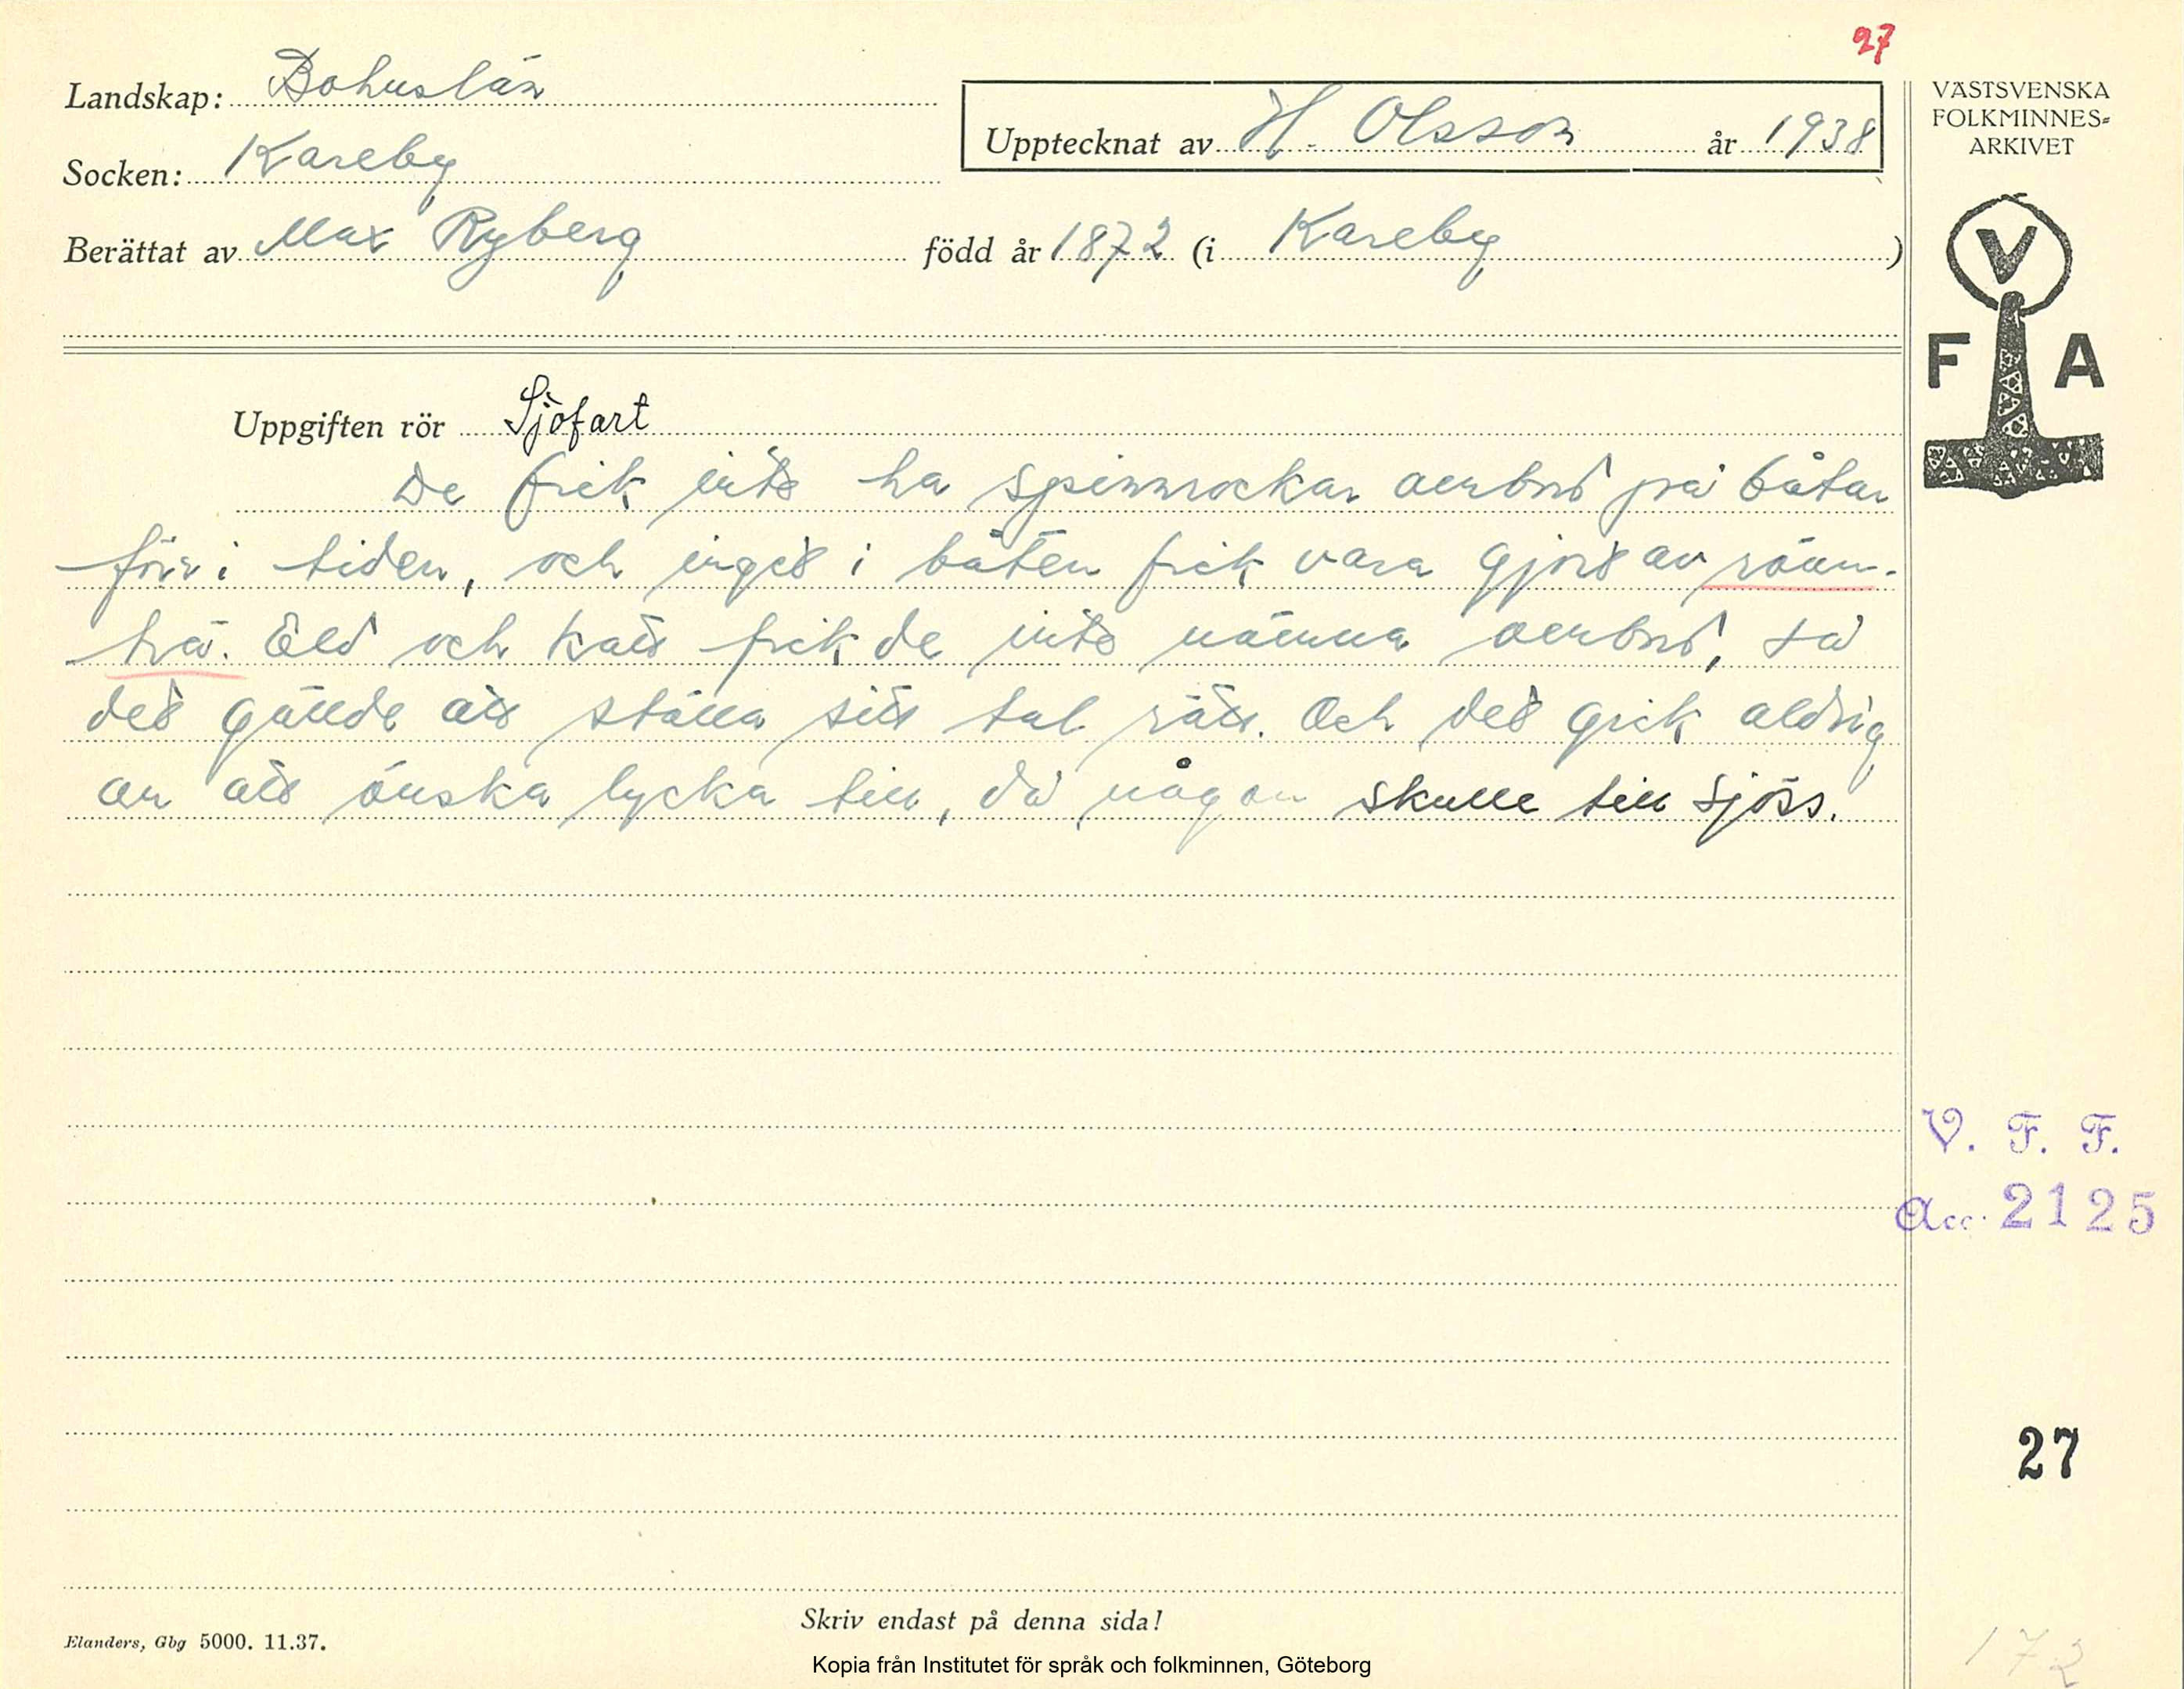 27
Landskap: Bohuslän
Socken: Kareby
Berättat av Max Ryberg född år 1872 (i Kareby )
Upptecknat av H. Olsson år 1938
VÄSTSVENSKA
FOLKMINNES=
ARKIVET
V
F A
Uppgiften rör Sjöfart
De fick inte ha spinnrockar ombord på båtar
förr i tiden, och inget i båten fick vara gjort av rönn-
trä. Eld och katt fick de inte nämna ombord, så
det gällde att ställa sitt tal rätt. Och det gick aldrig
an att önska lycka till, då någon skulle till sjöss.
V. F. F.
Acc. 2125
27
172
Skriv endast på denna sida!
Elanders, Gbg 5000. 11.37.
Kopia från Institutet för språk och folkminnen, Göteborg